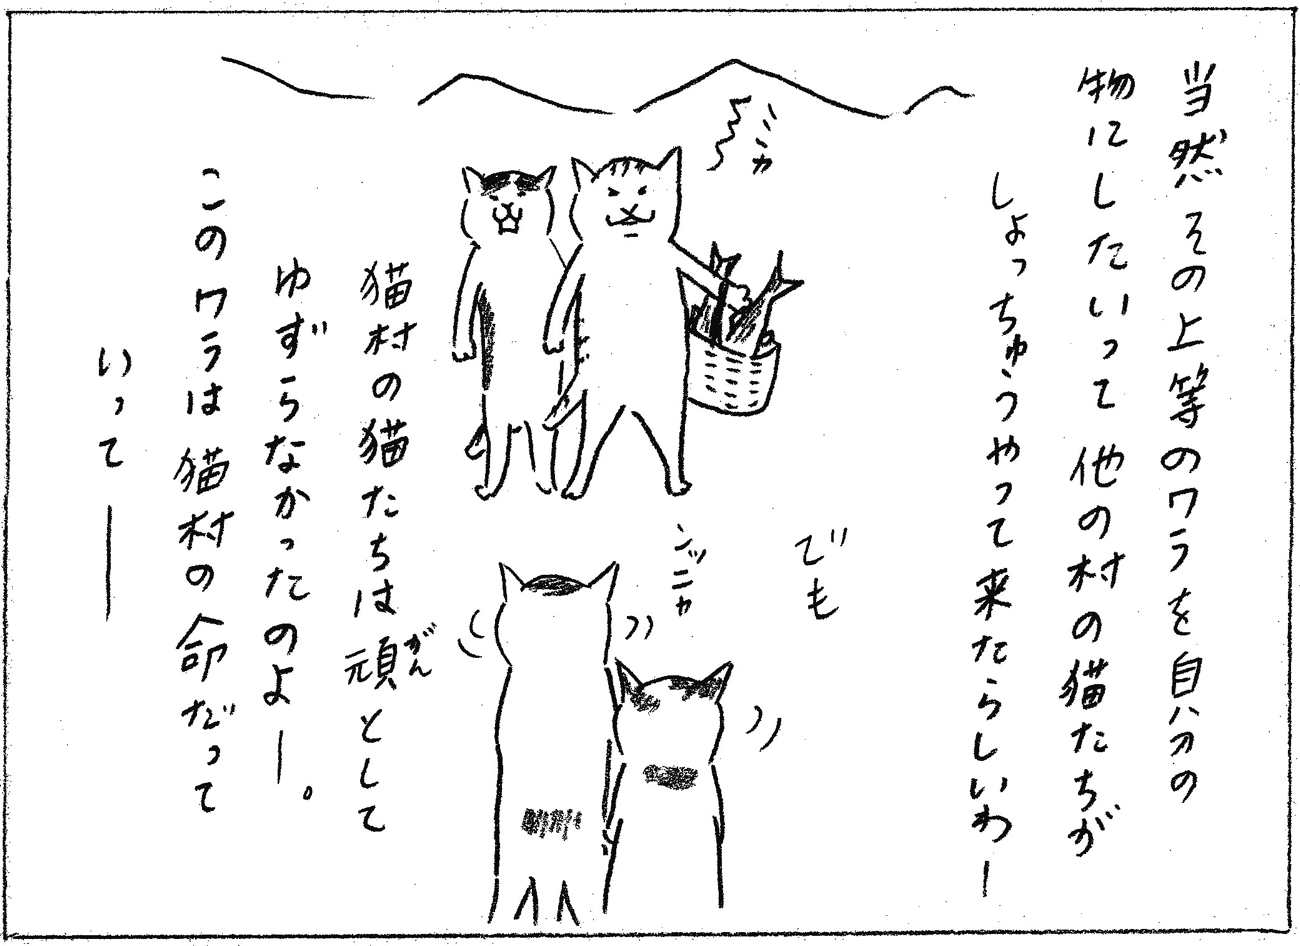 当然その上等のワラを自分の
物にしたいって他の村の猫たちが
しょっちゅうやって来たらしいわー
ミミカ
でも
ンッニャ
猫村の猫たちは頑として
がん
ゆずらなかったのよー。
このワラは猫村の命だって
いって―